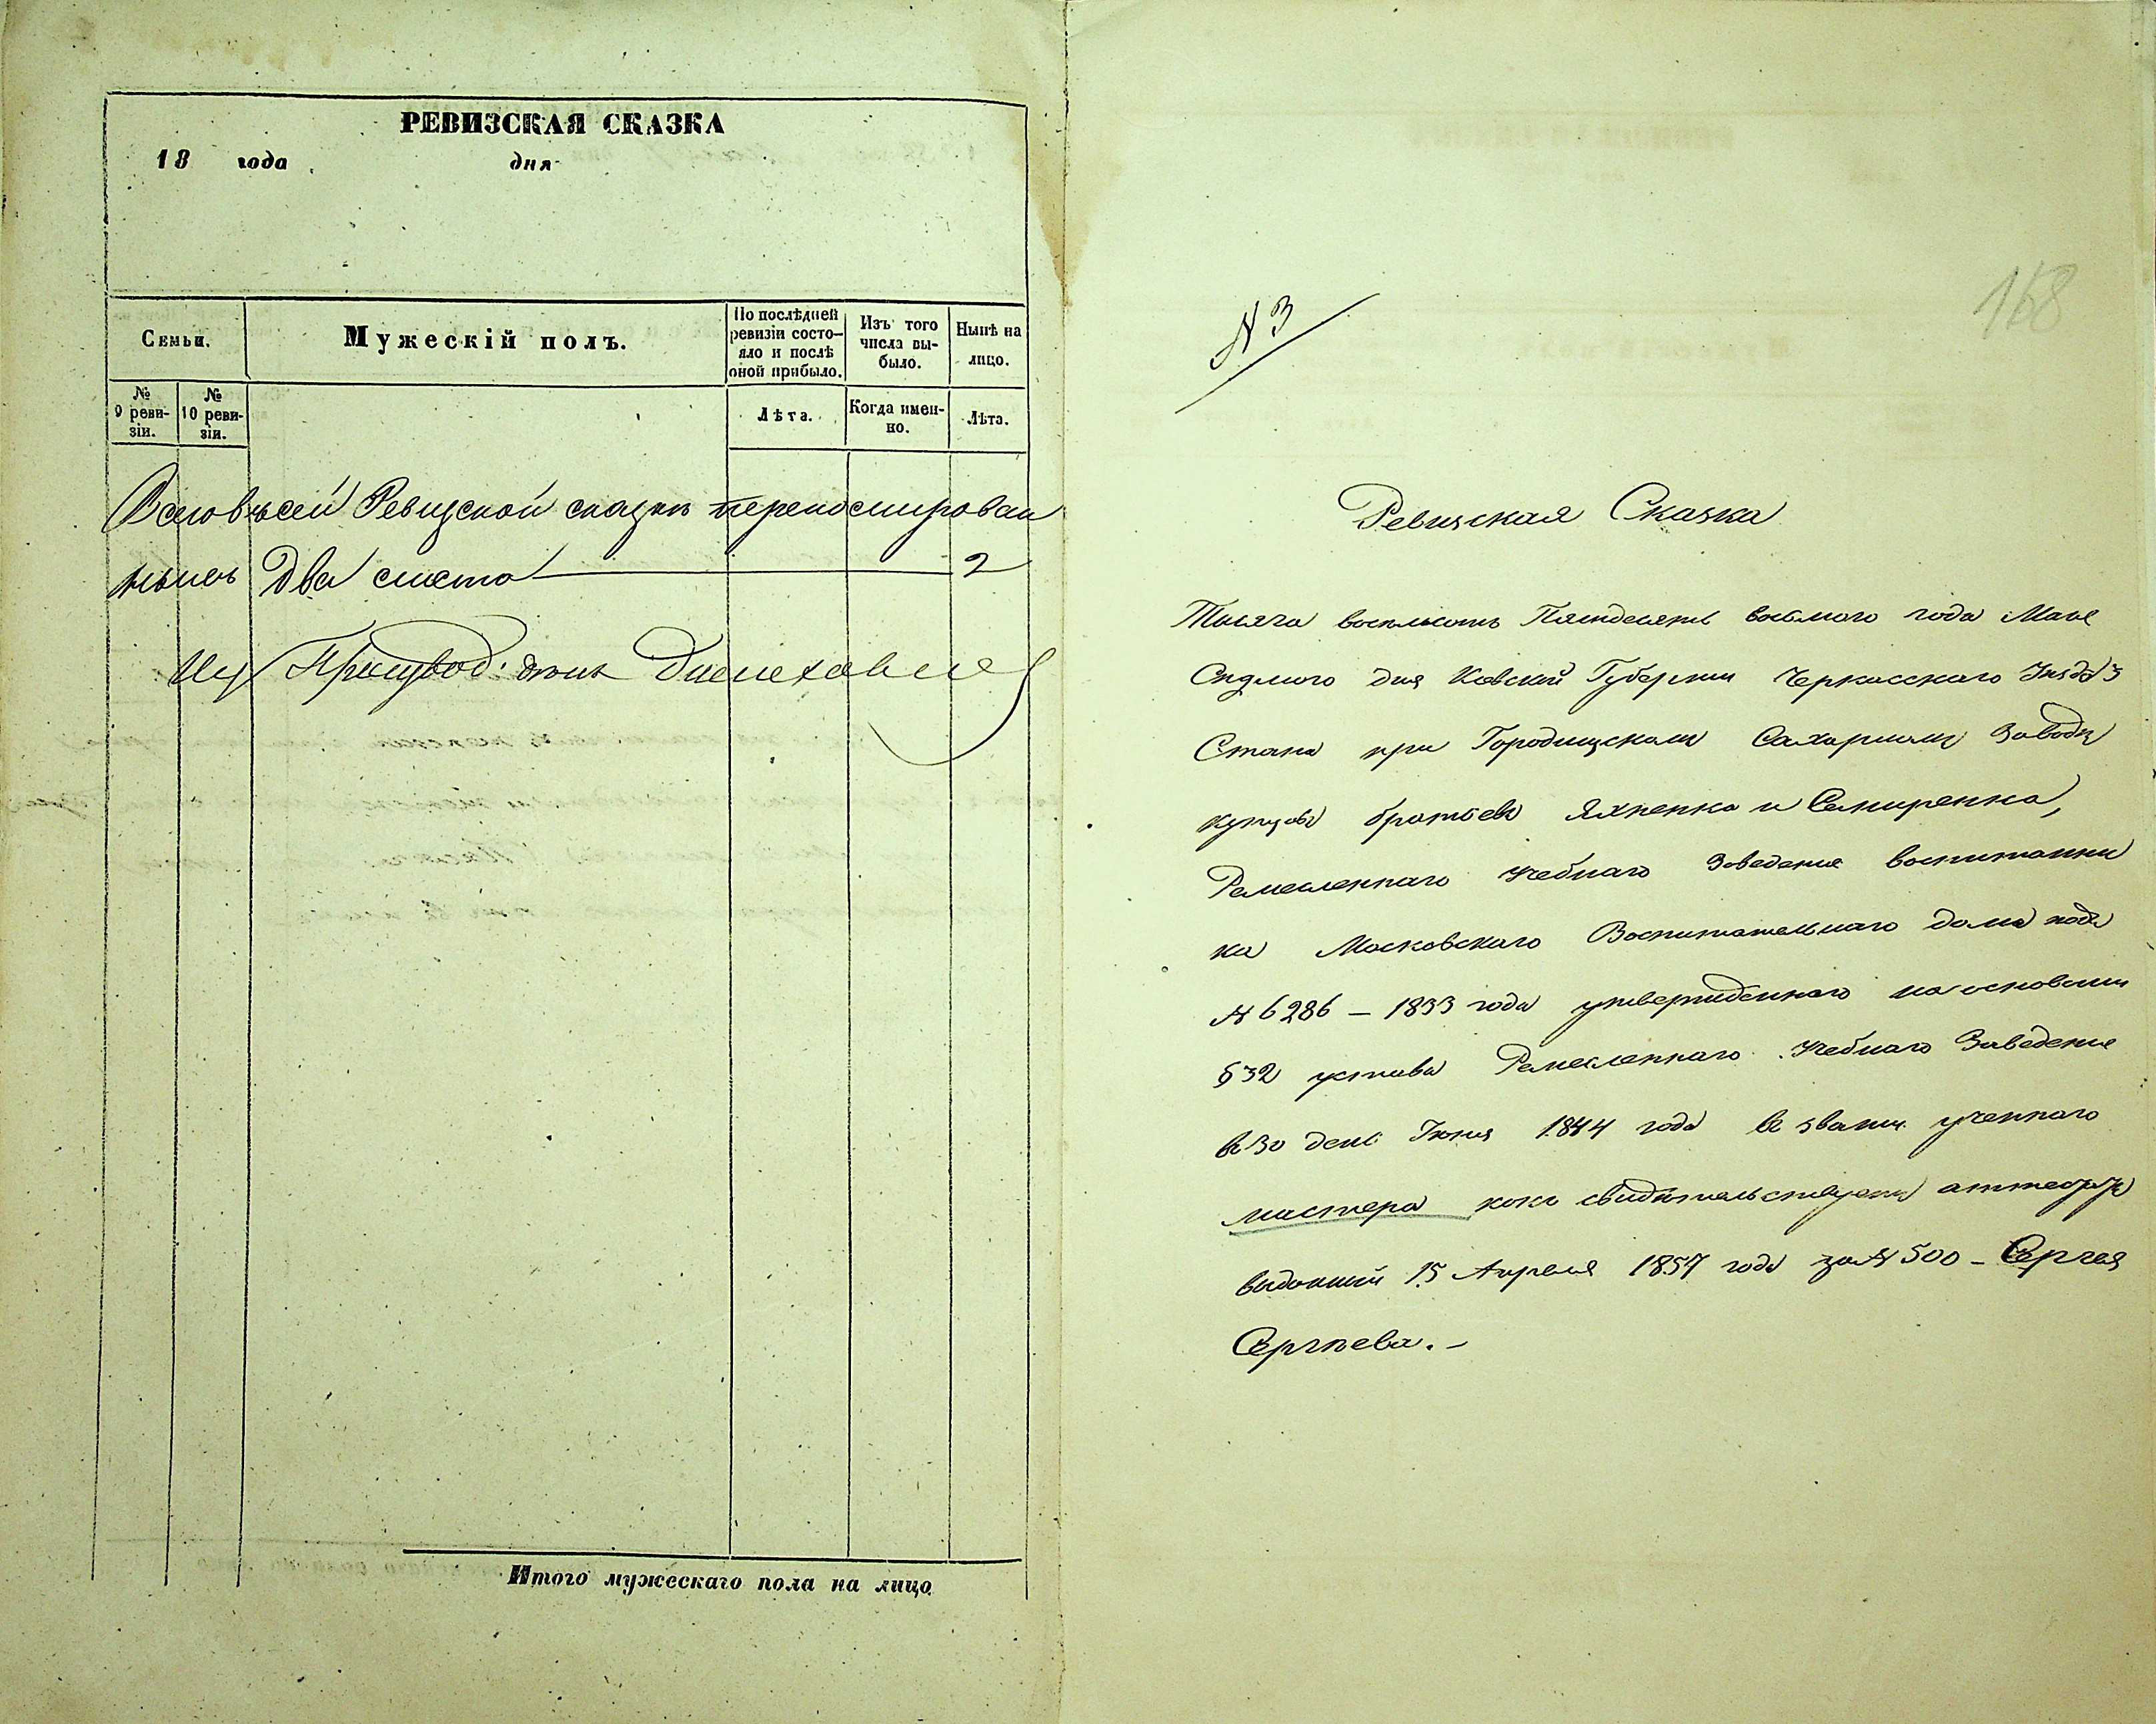 РЕВИЗСКАЯ СКАЗКА
18 года дня
Семьи.
Мужескій полъ.
По послѣдней ревизіи состо-
яло и послѣ оной прибыло.
Изъ того числа вы-
было.
Нынѣ на лицо.
№ 9 реви-
зіи.
№ 10 реви-
зіи.
Лѣта.
Когда имен-
но.
Лѣта.
Всего въ сей Ревизской сказкѣ перено
ныхъ два листа 2
Итого мужескаго пола на лицо
168
№ 3
Ревизская Сказка
Тысяча восемьсотъ Пятдесятъ восьмого года Мая
Седмого дня Кіевской Губерніи Черкасскаго Уѣзда 3
Стана при Городищскомъ Сахарномъ Заводѣ
купцовъ братьевъ Яхненка и Семиренка,
Ремесленнаго Учебнаго Заведенія воспитанни
ка Московскаго Воспитательнаго дома подъ
№ 6286 — 1833 года утвержденнаго на основаніи
§ 32 устава Ремесленнаго Учебнаго Заведенія
въ 30 день Іюня 1844 года въ званіи ученнаго
мастера какъ свидѣтельствуетъ
выданный 15 Апреля 1857 года за № 500 - Сергея
Сергѣева. -